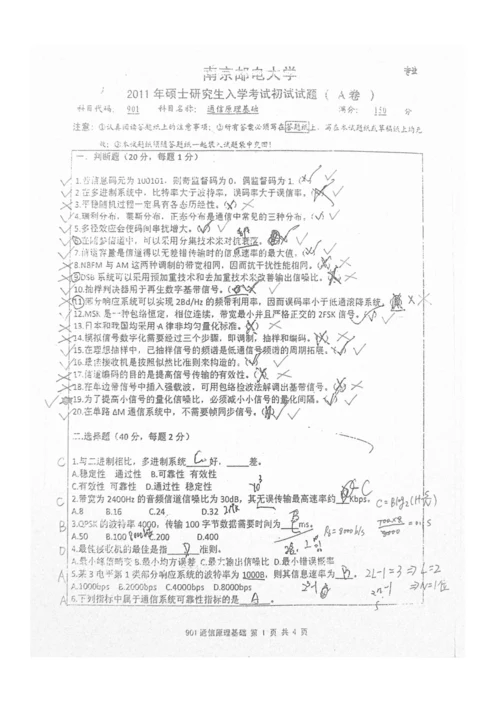 南京邮电大学
2011 年硕士研究生入学考试初试试题（ A 卷 ）
科目代码： 901 科目名称： 通信原理基础 满分： 150 分
注意：①认真阅读答题纸上的注意事项；②所有答案必须写在答题纸上，写在本试题纸或草稿纸上均无
效；③本试题纸须随答题纸一起装入试题袋中交回！
一．判断题（20 分，每题 1 分）
1.若信息码元为 100101，则奇监督码为 0，偶监督码为 1.
2.在多进制系统中，比特率大于波特率，误码率大于误信率。
3.平稳随机过程一定具有各态历经性。
4.瑞利分布、莱斯分布、正态分布是通信中常见的三种分布。
5.多径效应会使码间串扰增大。
6.在随参信道中，可以采用分集技术来对抗衰落。
7.信道容量是信道得以无差错传输时的信息速率的最大值。
8.NBFM 与 AM 这两种调制的带宽相同，因而抗干扰性能相同。
9.DSB 系统可以采用预加重技术和去加重技术来改善输出信噪比。
10.抽样判决器用于再生数字基带信号。
11.部分响应系统可以实现 2Bd/Hz 的频带利用率，因而误码率小于低通滚降系统。
12.MSK 是一种包络恒定，相位连续，带宽最小并且严格正交的 2FSK 信号。
13.日本和我国均采用 A 律非均匀量化标准。
14.模拟信号数字化需要经过三个步骤，即调制，抽样和编码。
15.在理想抽样中，已抽样信号的频谱是低通信号频谱的周期拓展。
16.最佳接收机是按照似然比准则来构造的。
17.信道编码的目的是提高信号传输的有效性。
18.在单边带信号中插入强载波，可用包络检波法解调出基带信号。
19.为了提高小信号的量化信噪比，必须减小小信号的量化间隔。
20.在单路 ΔM 通信系统中，不需要帧同步信号。
二.选择题（40 分，每题 2 分）
C 1.与二进制相比，多进制系统 C 好，____差。
A.稳定性 通过性 B.可靠性 有效性
C.有效性 可靠性 D.通过性 稳定性
2.带宽为 2400Hz 的音频信道信噪比为 30dB，其无误传输最高速率约 Kbps。
A.8 B.16 C.24 D.32
B 3.QPSK 的波特率 4000，传输 100 字节数据需要时间为 ms。
A.50 B.100 C.200 D.400
D 4.最佳接收机的最佳是指 D 准则。
A.最小峰值畸变 B.最小均方误差 C.最大输出信噪比 D.最小错误概率
A 5.某 3 电平第 1 类部分响应系统的波特率为 1000B，则其信息速率为 。 2L-1=3 ⇒ L=2
A.1000bps B.2000bps C.4000bps D.8000bps
A 6.下列指标中属于通信系统可靠性指标的是 A 。
901 通信原理基础 第 1 页 共 4 页